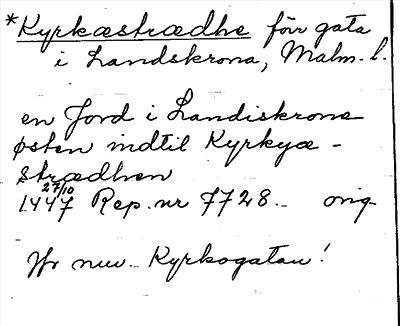 *Kyrkæstrædhe förr gata
i Landskrona, Malm. l.
en Jord i Landiskrone
østen indtil Kyrkyæ -
strædhen
27/10
1447 Rep. nr 7728.- orig.
Jfr nuv. Kyrkogatan!